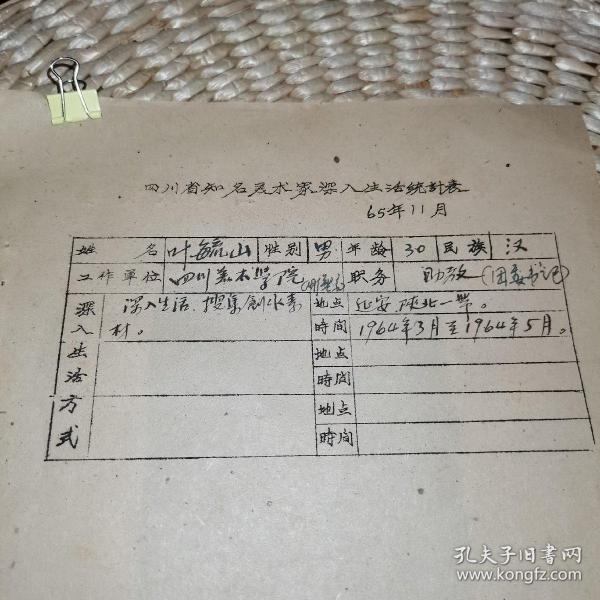 四川省知名美术家深入生活统計表
65年11月
姓名 叶毓山 性别 男 年龄 30 民族 汉
工作单位 四川美术学院 职务 助教(团委书记)
深入生活方式
深入生活、搜集創作素材。
地点 延安、陕北一带。
時间 1964年3月至1964年5月。
地点
時间
地点
時间
孔夫子旧书网
www.kongfz.com